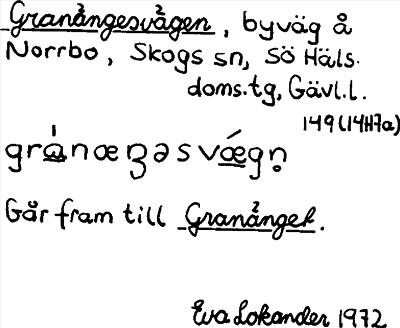 Granängesvägen, byväg å
Norrbo, Skogs sn, Sö Häls.
doms.tg, Gävl.l.
149 (14H7a)
grànæŋəsvǽgn̥
Går fram till Grananget.
Eva Lokander 1972